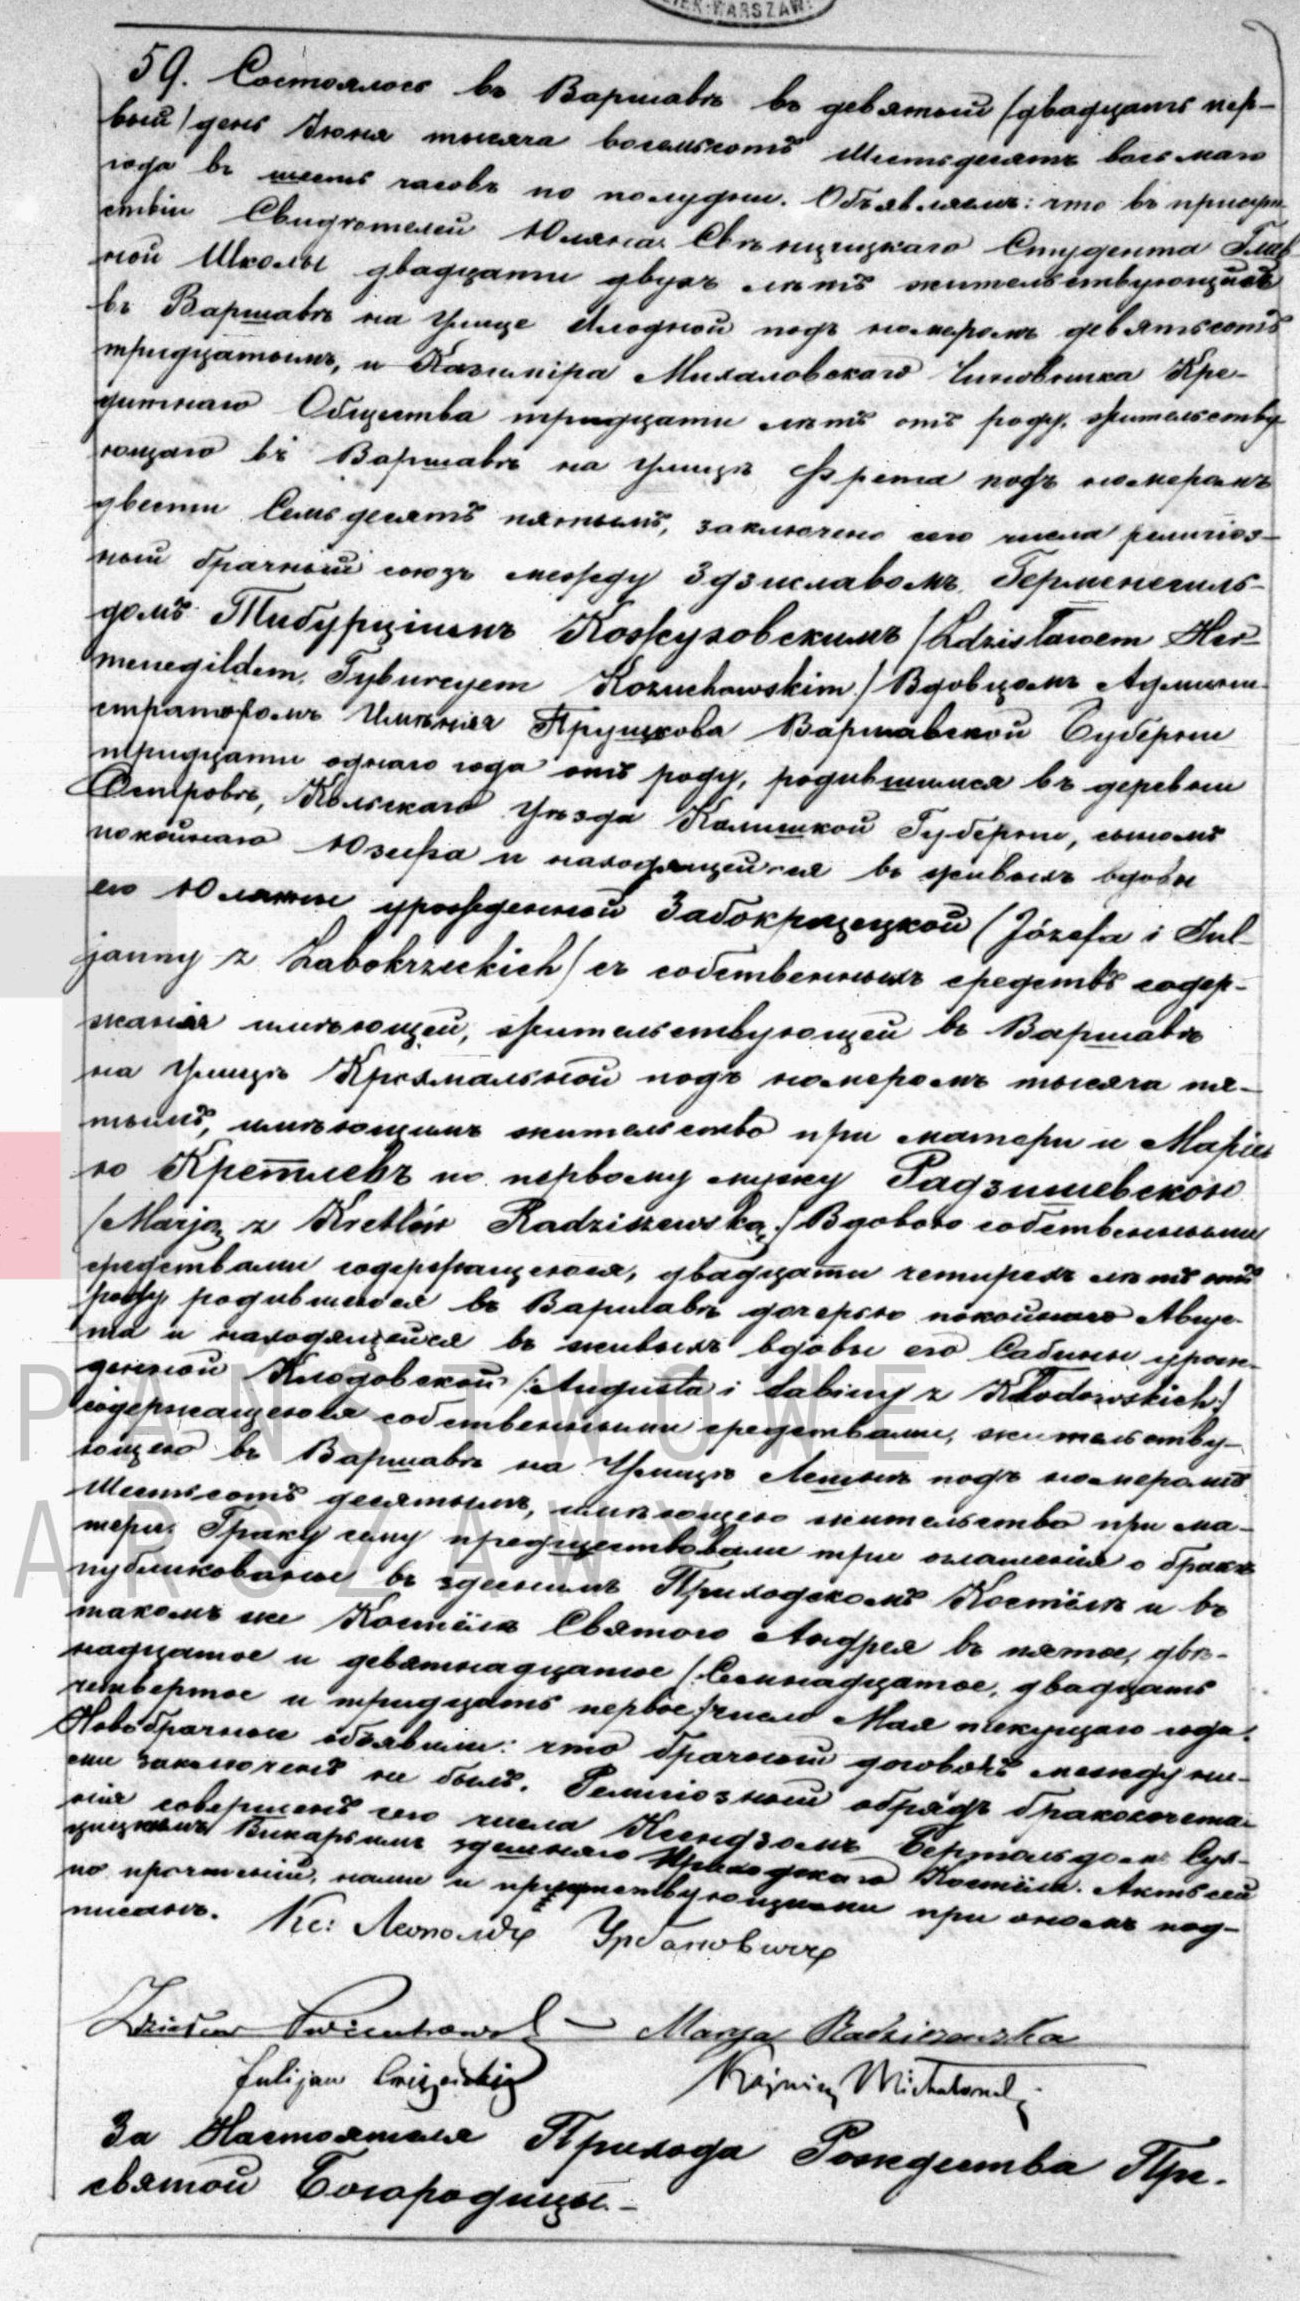 59. Состоялось въ Варшавѣ въ девятый /двадцать пер-
вый/ день Іюня тысяча восемьсотъ шестьдесятъ восьмаго
года въ шесть часовъ по полудни. Объявляемъ: что въ присут-
ствіи Свидѣтелей Юліяна Студента Глав
ной Школы двадцати двухъ лѣтъ жительствующаго
въ Варшавѣ на Улице Хлодной подъ номеромъ девятьсотъ
тридцатымъ, и Казиміра Михаловскаго Чиновника Кре-
дитнаго Общества тридцати лѣтъ отъ роду, жительству
ющаго въ Варшавѣ на Улицѣ Фрета подъ номеромъ
двести Семьдесятъ пятымъ, заключено сего числа религіоз-
ный брачный союзъ между Здзиславомъ Герменегиль-
домъ Тибурціимъ Кожуховскимъ /Zdzisławem Her-
menegildem, Tyburcyem Kożuchowskim/ Вдовцомъ Админи-
страторомъ Имѣнія Прушкова Варшавской Губерніи
тридцати однаго года отъ роду, родившимся въ деревни
Островѣ, Кольскаго Уѣзда Калишкой Губерніи, сыномъ
покойнаго Юзефа и находящейся въ живыхъ вдовы
его Юліянны урожденной Забокржецкой (Józefa i Jul-
janny z Zabokrzeckich/ съ собственныхъ средствъ содер-
жанія имѣющей, жительствующей въ Варшавѣ
на Улицѣ Крохмальной подъ номеромъ тысяча пя-
тымъ, имѣющимъ жительство при матери и Маріе
ю Кретлевъ по первому мужу Радзишевскою
/Marją z Kretlów Radziszewską/ Вдовою собственными
средствами содержащеюся, двадцати четырехъ лѣтъ отъ
роду, родившеюся въ Варшавѣ дочерью покойнаго Авгус-
та и находящейся въ живыхъ вдовы его Сабины урож-
денной Клодовской /Augusta i Sabiny z Kłodowskich/
содержащеюся собственными средствами, жительству-
ющею въ Варшавѣ на Улицѣ Лешнѣ подъ номеромъ
шестьсотъ десятымъ, имѣющею жительство при ма-
тери. Браку сему предшествовали три оглашенія о бракѣ
публикованые въ здешнимъ Приходскомъ Костёлѣ и въ
такомъ же Костёлѣ Святого Андрея въ пятое, две-
надцатое и девятнадцатое /Семнадцатое, двадцать
четвертое и тридцать первое/ число Мая текущаго года.
Новобрачные объявили: что брачный договоръ между ни-
ми заключенъ не былъ. Религіозный обрядъ бракосочета-
нія совершенъ сего числа Ксендзомъ Бертольдомъ
Викарымъ здешняго Приходскаго Костёла. Актъ сей
по прочтеніи, нами и присутствующими при ономъ под-
писанъ. Кс: Леопольдъ Урбановичъ
Marja Radziszewska
Julijan Kazimirz Michałowski
За Настоятеля Прихода Рождества Пре-
святой Богородицы.-
PAŃSTWOWE
ARSZAWY